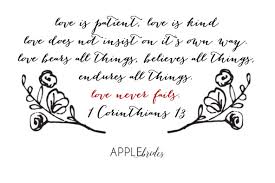 love is patient, love is kind
love does not insist on it's own way.
love bears all things, believes all things,
endures all things.
love never fails.
1 Corinthians 13
APPLEbrides